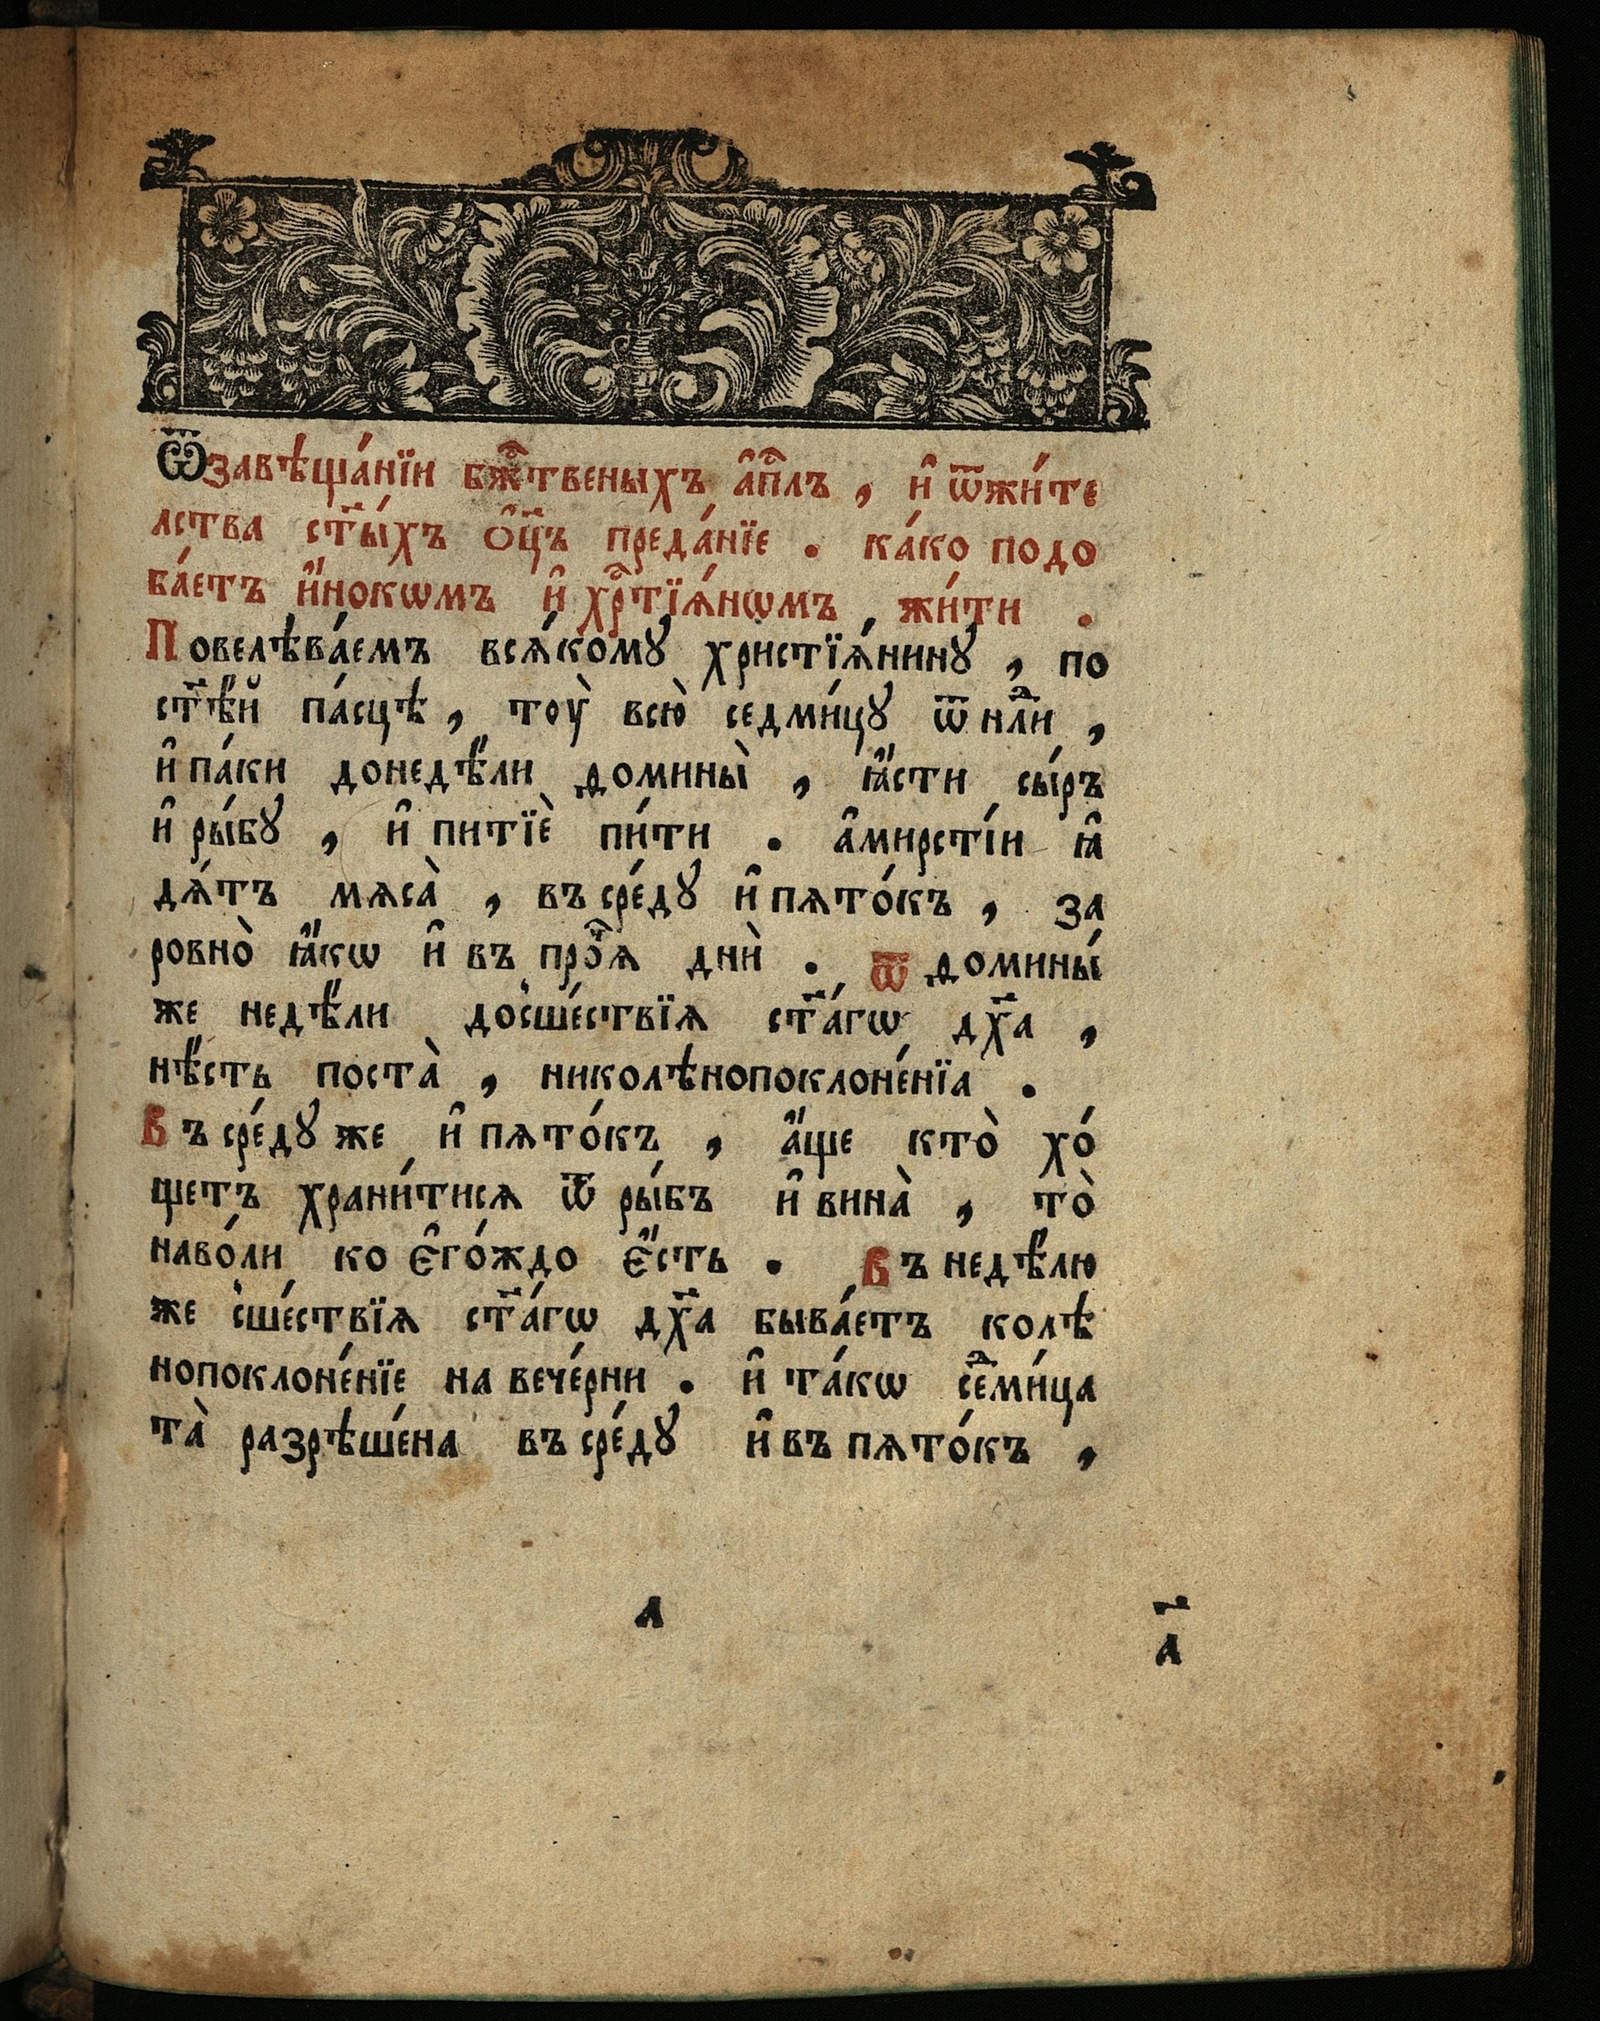 Ѿзавѣща́нїи бж҃твеныхъ а҆п҃лъ , и҆ ѿжи́те
лства ст҃ы́хъ ѻ҆ц҃ъ преда́нїе . ка́ко подо
ба́етъ и҆́нокѡмъ и҆ хр҃тїѧ́нѡмъ жи́ти .
Повелѣва́емъ всѧ́кому христїѧ́нину , по
ст҃ѣ́й па́сцѣ , тоу̀ всю̀ седми́цу ѿ нл҃и ,
и҆ па́ки донедѣ́ли домины̀ , ꙗ҆́сти сы́ръ
и҆ ры́бу , и҆ питїѐ пи́ти . а҆мирсті́и ꙗ҆
дѧ́тъ мѧса̀ , въ сре́ду и҆ пѧто́къ , за
ровно̀ ꙗ҆́кѡ и҆ въ про́ⷱ҇ѧ днѝ . ѿ домины́
же недѣ́ли досше́ствїѧ ст҃а́гѡ дх҃а ,
нѣ́сть поста̀ , николѣнопоклоне́нїа .
Въ сре́ду же и҆ пѧто́къ , а҆́ще кто̀ хо́
щетъ храни́тисѧ ѿ ры́бъ и҆ вина̀ , то̀
наво́ли ко є҆го́ждо є҆́сть . Въ недѣ́лю
же сше́ствїѧ ст҃а́гѡ дх҃а быва́етъ колѣ
нопоклоне́нїе на вече́рни . и҆ та́кѡ сеⷣми́ца
та̀ разрѣше́на въ сре́ду и҆ въ пѧто́къ ,
а
а҃